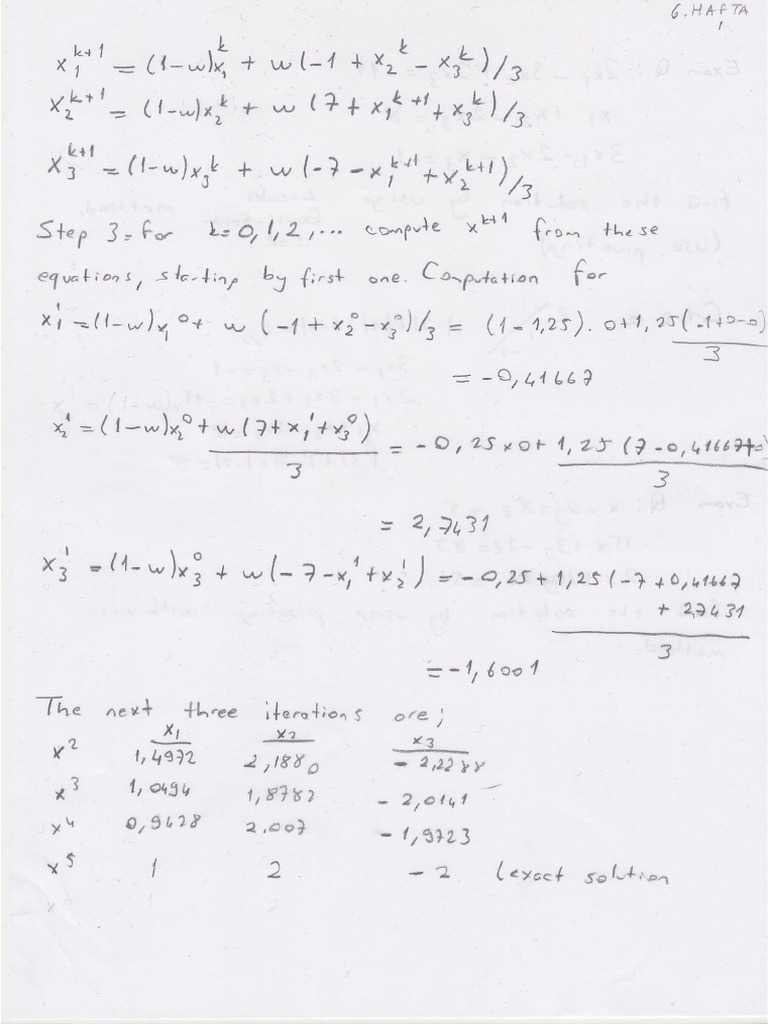 6.HAFTA
1
x₁^{k+1} = (1-w)x₁^k + w(-1 + x₂^k - x₃^k)/3
x₂^{k+1} = (1-w)x₂^k + w(7 + x₁^{k+1} + x₃^k)/3
x₃^{k+1} = (1-w)x₃^k + w(-7 - x₁^{k+1} + x₂^{k+1})/3
Step 3=For k=0,1,2,... compute x^{k+1} from these
equations, starting by first one. Computation for
x₁¹ = (1-w)x₁⁰ + w(-1 + x₂⁰ - x₃⁰)/3 = (1-1,25).0+1,25(-1+0-0)/3
= -0,41667
x₂¹ = (1-w)x₂⁰ + w(7+x₁¹+x₃⁰)/3 = -0,25x0+1,25(7-0,41667+0)/3
= 2,7431
x₃¹ = (1-w)x₃⁰ + w(-7-x₁¹+x₂¹) = -0,25+1,25(-7+0,41667
+2,7431
3
= -1,6001
The next three iterations are;
x₁ x₂ x₃
x² 1,4972 2,1880 -2,2288
x³ 1,0494 1,8782 -2,0141
x⁴ 0,9428 2.007 -1,9723
x⁵ 1 2 -2 (exact solution